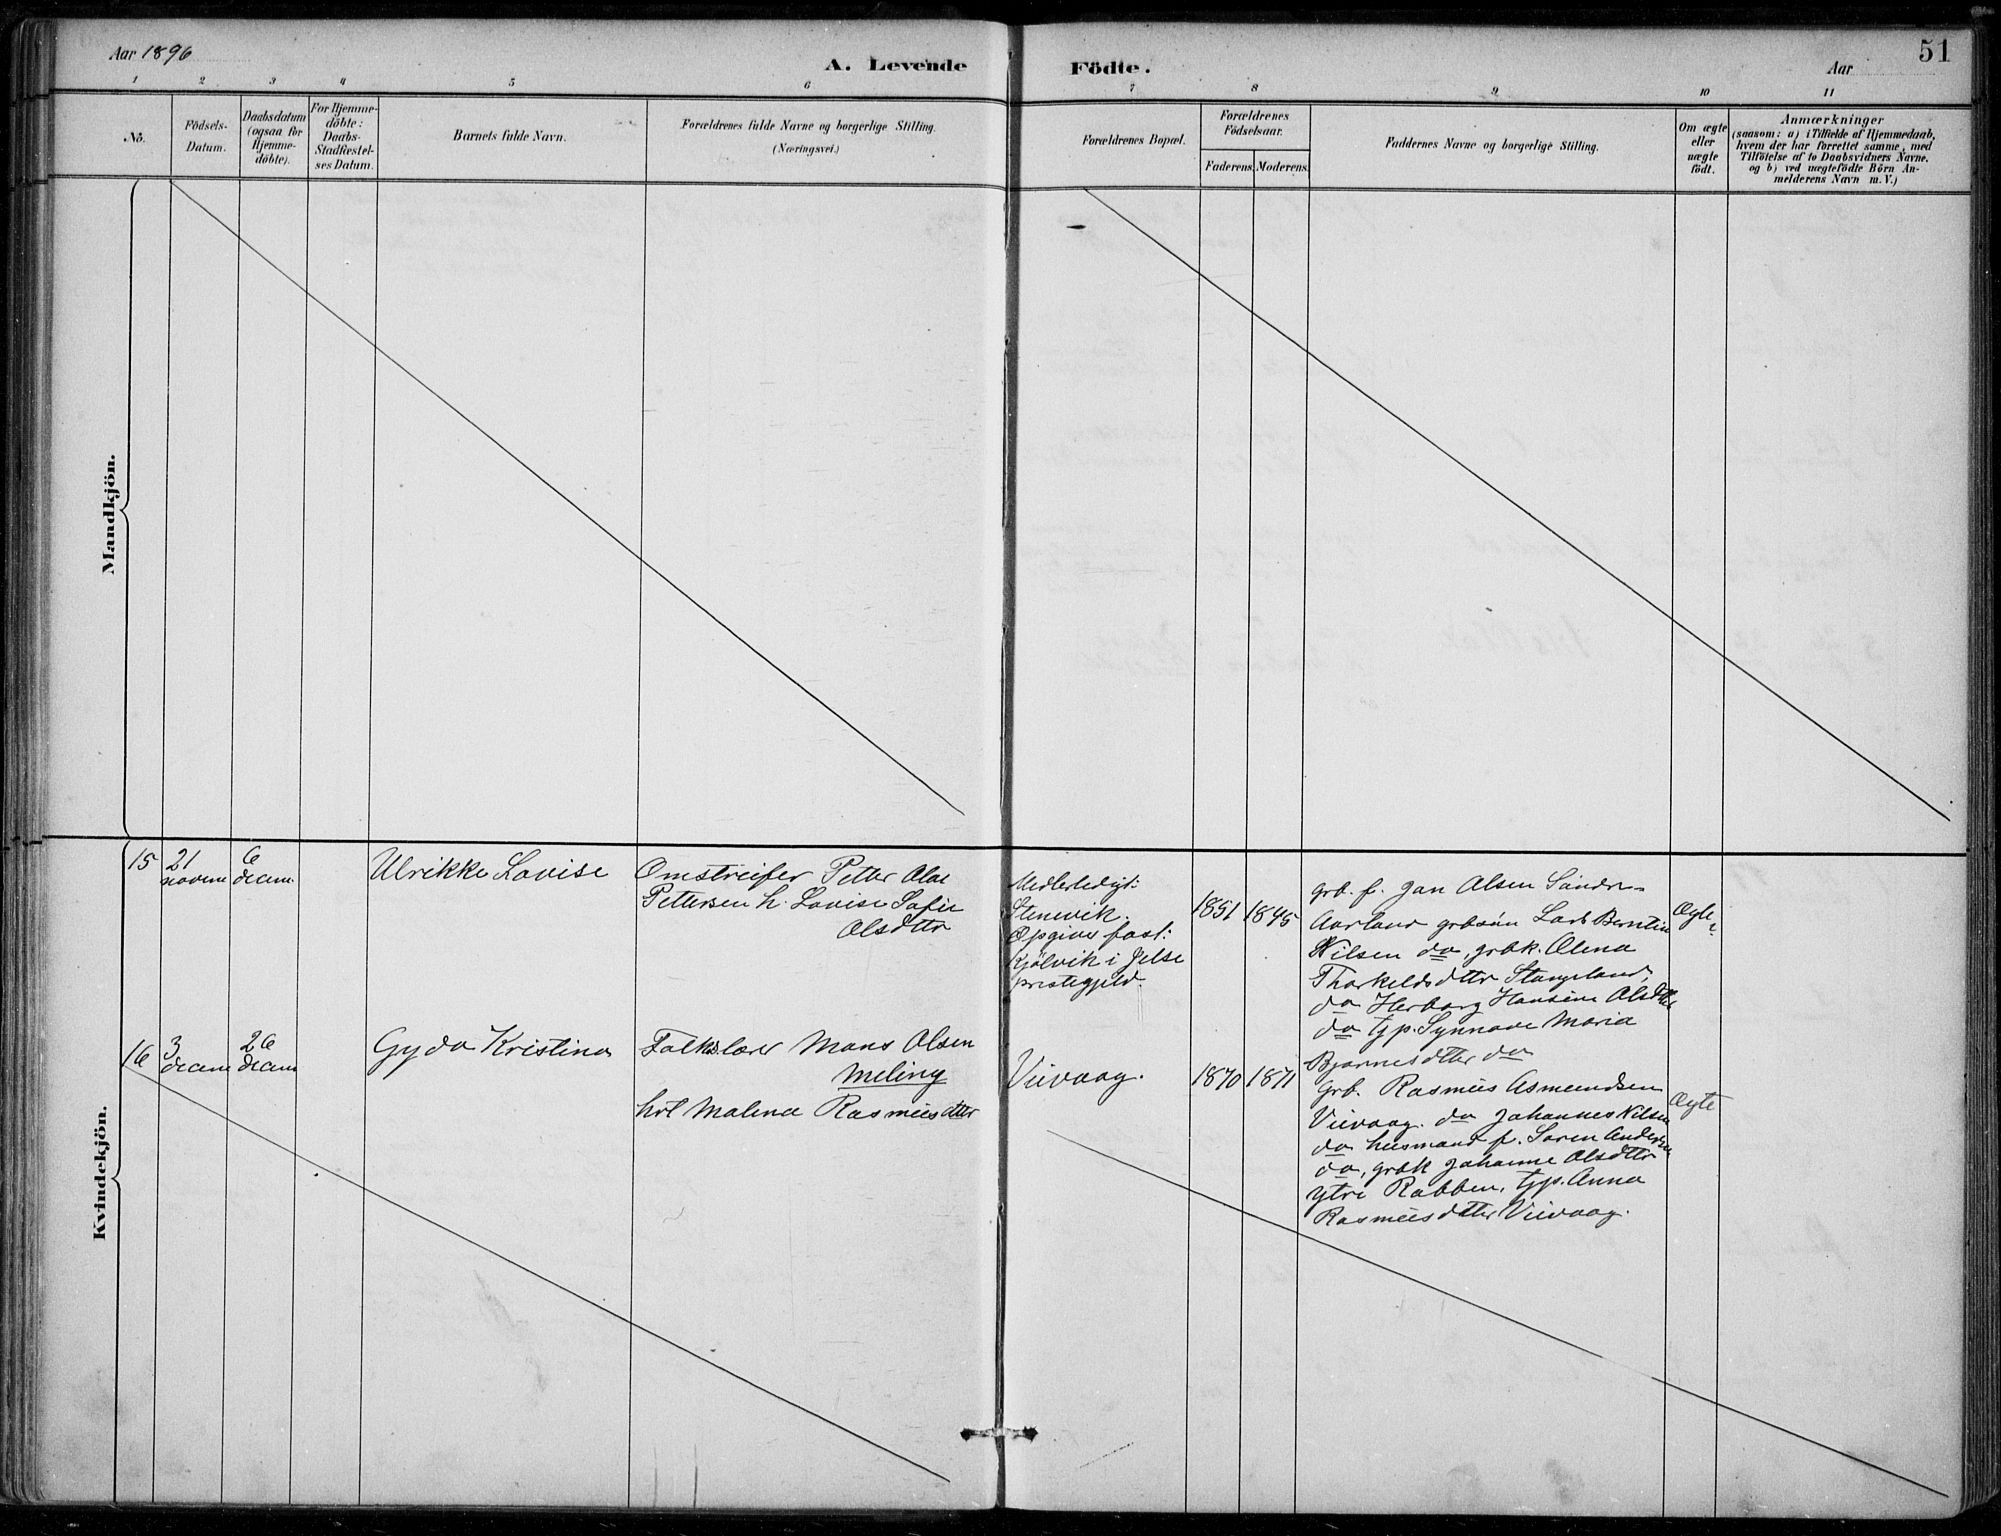 Aar 1896
A. Levende Födte.
Aar
51
1 2 3 4 5 6 7 8 9 10 11
No.
Födsels-
Datum.
Daabsdatum
(ogsaa for
Hjemme-
döbte).
For Hjemme-
döbte:
Daabs-
Stadfæstel-
ses Datum.
Barnets fulde Navn.
Forældrenes fulde Navne og borgerlige Stilling.
(Næringsvei.)
Forældrenes Bopæl.
Forældrenes
Födselsaar.
Faderens. Moderens.
Faddernes Navne og borgerlige Stilling.
Om ægte
eller
uægte
födt.
Anmærkninger
(saasom: a) i Tilfælde af Hjemmedaab,
hvem der har forrettet samme, med
Tilföielse af to Daabsvidners Navne.
og b) ved uægtefödte Börn An-
melderens Navn m. V.)
Mandkjön.
Kvindekjön.
15
21
novem
6
decem
Ulrikke Lovise
Omstreifer Petter Olai
Pettersen h. Lovise Sofie
Olsdttr
Medlertidigt:
Stenevik.
Opgives fast:
Kjölvik i Jelse
prestegjeld.
1851
1845
grb. f. Jan Olsen Söndre-
Aarland grbsön Lars Berntin
Nilsen do, grbk. Olena
Thorkeldsdttr Stangeland,
do Herborg Hansine Olsdttr
do tjp. Synnove Maria
Bjarnesdttr do
Ægte
16
3
decem
26
decem
Gyda Kristina
Folkelærer Mons Olsen
Meling
hvl Malena Rasmusdttr
Vievaag.
1870
1871
Grb. Rasmus Asmundsen
Vievaag. do Johannes Nilsen
do husmand f. Soren Andersen
do, grbk Johanne Olsdttr
Ytre Rabben, tjp. Anna
Rasmusdttr Vievaag.
Ægte